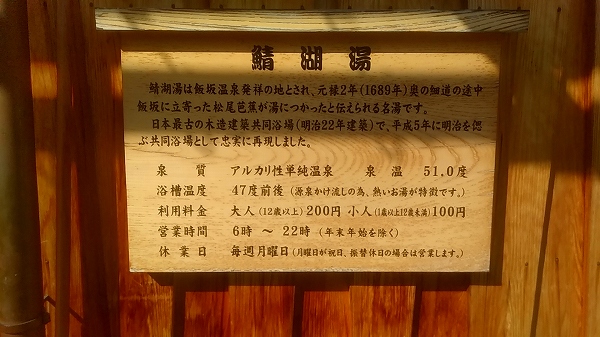 鯖湖湯
鯖湖湯は飯坂温泉発祥の地とされ、元禄2年(1689年)奥の細道の途中
飯坂に立寄った松尾芭蕉が湯につかったと伝えられる名湯です。
日本最古の木造建築共同浴場(明治22年建築)で、平成5年に明治を偲
ぶ共同浴場として忠実に再現しました。
泉質 アルカリ性単純温泉 泉温 51.0度
浴槽温度 47度前後(源泉かけ流しの為、熱いお湯が特徴です。)
利用料金 大人(12歳以上)200円 小人(1歳以上12歳未満)100円
営業時間 6時 〜 22時(年末年始を除く)
休業日 毎週月曜日(月曜日が祝日、振替休日の場合は営業します。)